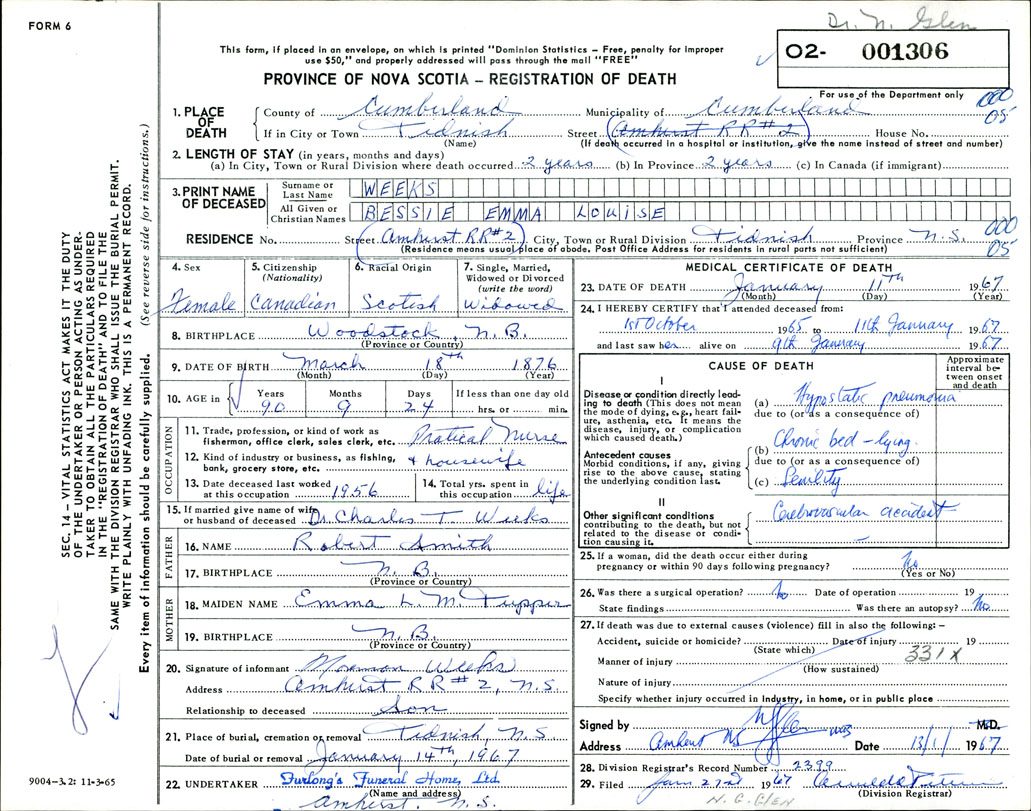 FORM 6
Dr. N. Glen
This form, if placed in an envelope, on which is printed "Dominion Statistics – Free, penalty for improper
use $50," and properly addressed will pass through the mail "FREE"
O2- 001306
PROVINCE OF NOVA SCOTIA – REGISTRATION OF DEATH
For use of the Department only
000
05
1. PLACE OF DEATH
County of Cumberland Municipality of Cumberland
If in City or Town Tidnish Street Amherst RR#2 House No.
(Name) (If death occurred in a hospital or institution, give the name instead of street and number)
2. LENGTH OF STAY (in years, months and days)
(a) In City, Town or Rural Division where death occurred 2 years (b) In Province 2 years (c) In Canada (if immigrant)
3. PRINT NAME OF DECEASED
Surname or Last Name WEEKS
All Given or Christian Names BESSIE EMMA LOUISE
RESIDENCE No. Street Amherst RR#2 City, Town or Rural Division Tidnish Province N.S.
(Residence means usual place of abode. Post Office Address for residents in rural parts not sufficient)
000
05
4. Sex
Female
5. Citizenship
(Nationality)
Canadian
6. Racial Origin
Scotish
7. Single, Married,
Widowed or Divorced
(write the word)
Widowed
8. BIRTHPLACE Woodstock, N.B.
(Province or Country)
9. DATE OF BIRTH March 18th 1876
(Month) (Day) (Year)
10. AGE in
Years Months Days If less than one day old
90 9 24 hrs. or min.
OCCUPATION
11. Trade, profession, or kind of work as
fisherman, office clerk, sales clerk, etc. Pratical Nurse
12. Kind of industry or business, as fishing,
bank, grocery store, etc. & housewife
13. Date deceased last worked
at this occupation 1956
14. Total yrs. spent in
this occupation life
15. If married give name of wife
or husband of deceased Dr. Charles T. Weeks
FATHER
16. NAME Robert Smith
17. BIRTHPLACE N.B.
(Province or Country)
MOTHER
18. MAIDEN NAME Emma L. M. Tupper
19. BIRTHPLACE N.B.
(Province or Country)
20. Signature of informant Norman Weeks
Address Amherst RR#2, N.S.
Relationship to deceased Son
21. Place of burial, cremation or removal Tidnish, N.S
Date of burial or removal January 14th, 1967
22. UNDERTAKER Furlong's Funeral Home, Ltd
(Name and address)
Amherst, N.S.
MEDICAL CERTIFICATE OF DEATH
23. DATE OF DEATH January 11TH 1967
(Month) (Day) (Year)
24. I HEREBY CERTIFY that I attended deceased from:
1st October 1965 to 11th January 1967
and last saw her alive on 9th January 1967
CAUSE OF DEATH
Approximate
interval be-
tween onset
and death
I
Disease or condition directly lead-
ing to death (This does not mean
the mode of dying, e.g., heart fail-
ure, asthenia, etc. It means the
disease, injury, or complication
which caused death.)
(a) Hypostatic pneumonia
due to (or as a consequence of)
Antecedent causes
Morbid conditions, if any, giving
rise to the above cause, stating
the underlying condition last.
(b) Chronic bed-lying.
due to (or as a consequence of)
(c) Senility
II
Other significant conditions
contributing to the death, but not
related to the disease or condi-
tion causing it.
Cerebrovascular accident
25. If a woman, did the death occur either during
pregnancy or within 90 days following pregnancy? No
(Yes or No)
26. Was there a surgical operation? No Date of operation 19
State findings Was there an autopsy? No.
27. If death was due to external causes (violence) fill in also the following:–
Accident, suicide or homicide? Date of injury 19
(State which)
331X
Manner of injury
(How sustained)
Nature of injury
Specify whether injury occurred in Industry, in home, or in public place
Signed by N Glen M.D.
Address Amherst NS Date 13/1/ 1967
28. Division Registrar's Record Number 2399
29. Filed Jan 27-2 1967
(Division Registrar)
N. G. GLEN
SEC. 14 – VITAL STATISTICS ACT MAKES IT THE DUTY
OF THE UNDERTAKER OR PERSON ACTING AS UNDER-
TAKER TO OBTAIN ALL THE PARTICULARS REQUIRED
IN THE "REGISTRATION OF DEATH" AND TO FILE THE
SAME WITH THE DIVISION REGISTRAR WHO SHALL ISSUE THE BURIAL PERMIT.
WRITE PLAINLY WITH UNFADING INK. THIS IS A PERMANENT RECORD.
Every item of information should be carefully supplied. (See reverse side for instructions.)
9004–3.2: 11-3-65